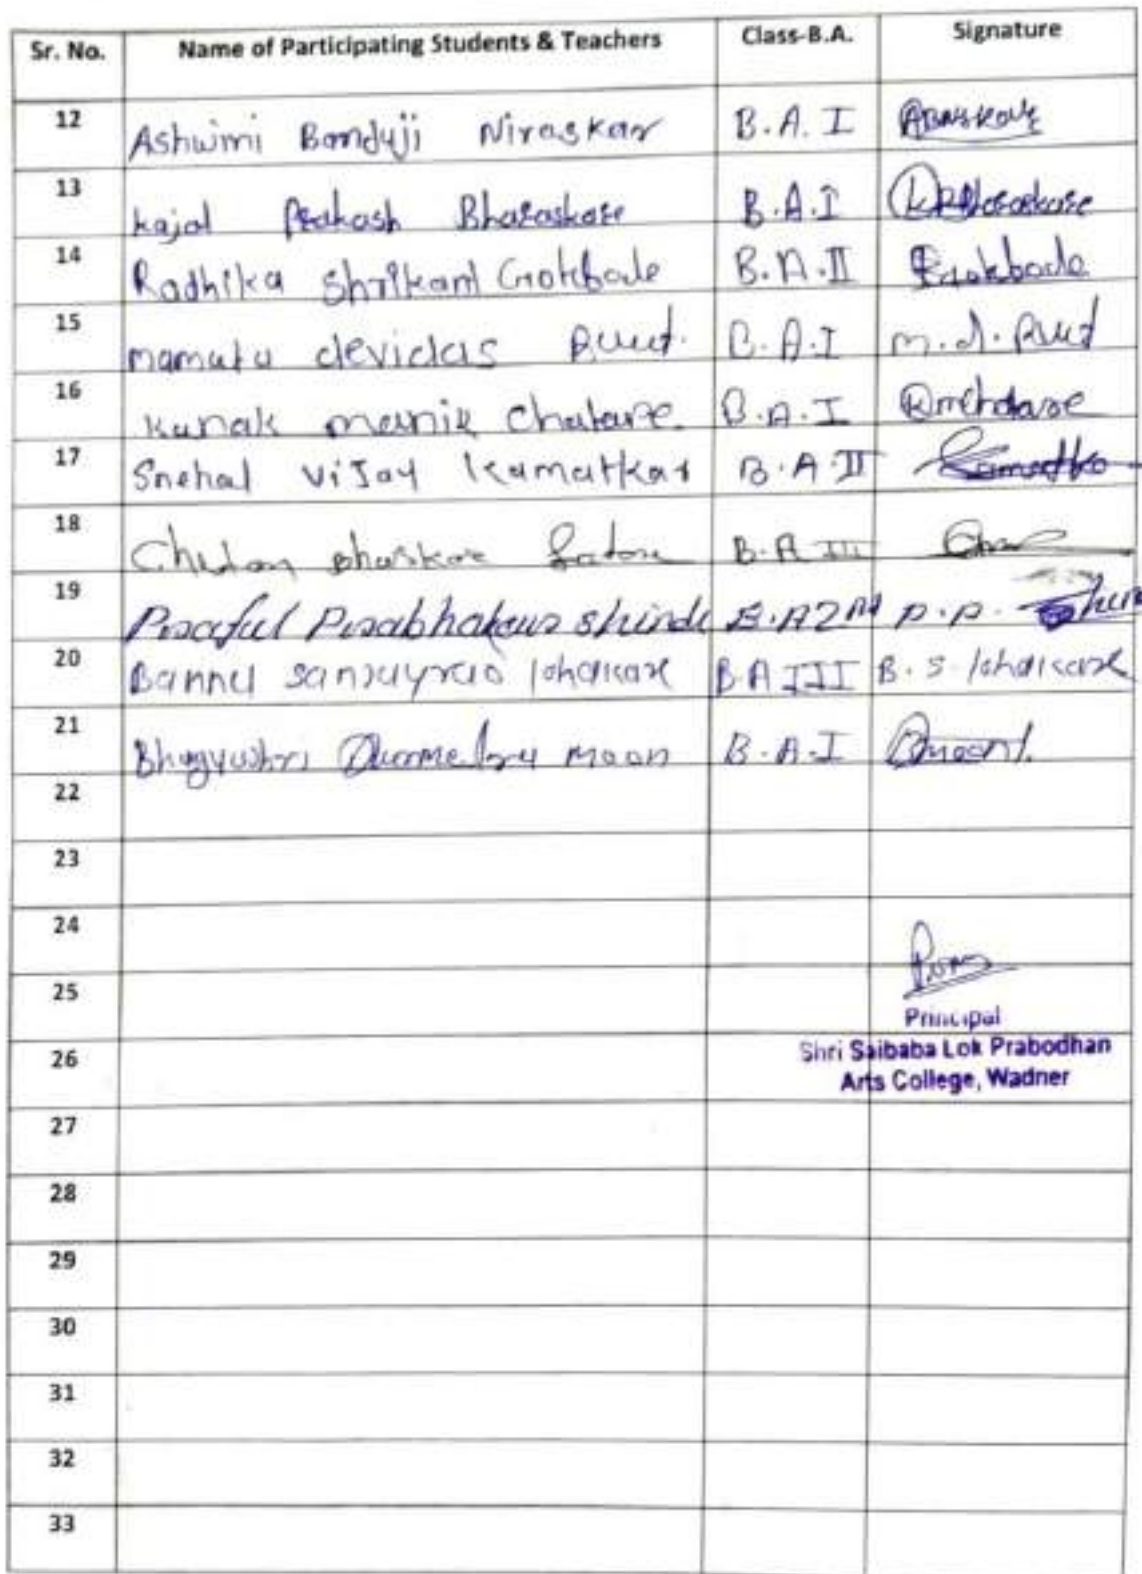 Sr. No. Name of Participating Students & Teachers Class-B.A. Signature
12 Ashwini Banduji Niraskar B.A. I
13 Kajal Prakash Bharaskare B.A.I
14 Radhika Shrikant Gotkbade B.A.II
15 mamata devidas Raut. B.A.I m.d. Raut
16 Kanak manik Chatare. B.A.I
17 Snehal Vijay Kamatkar B.A II
18 Chetan Bhaskar B.A III
19 Praful Prabhakar Shinde B.A 2nd P.P.
20 Sanjayrao lohakare B.A III B.S. lohakare
21 Bhagyashri moon B.A.I
22
23
24
25
Principal
26 Shri Saibaba Lok Prabodhan
Arts College, Wadner
27
28
29
30
31
32
33